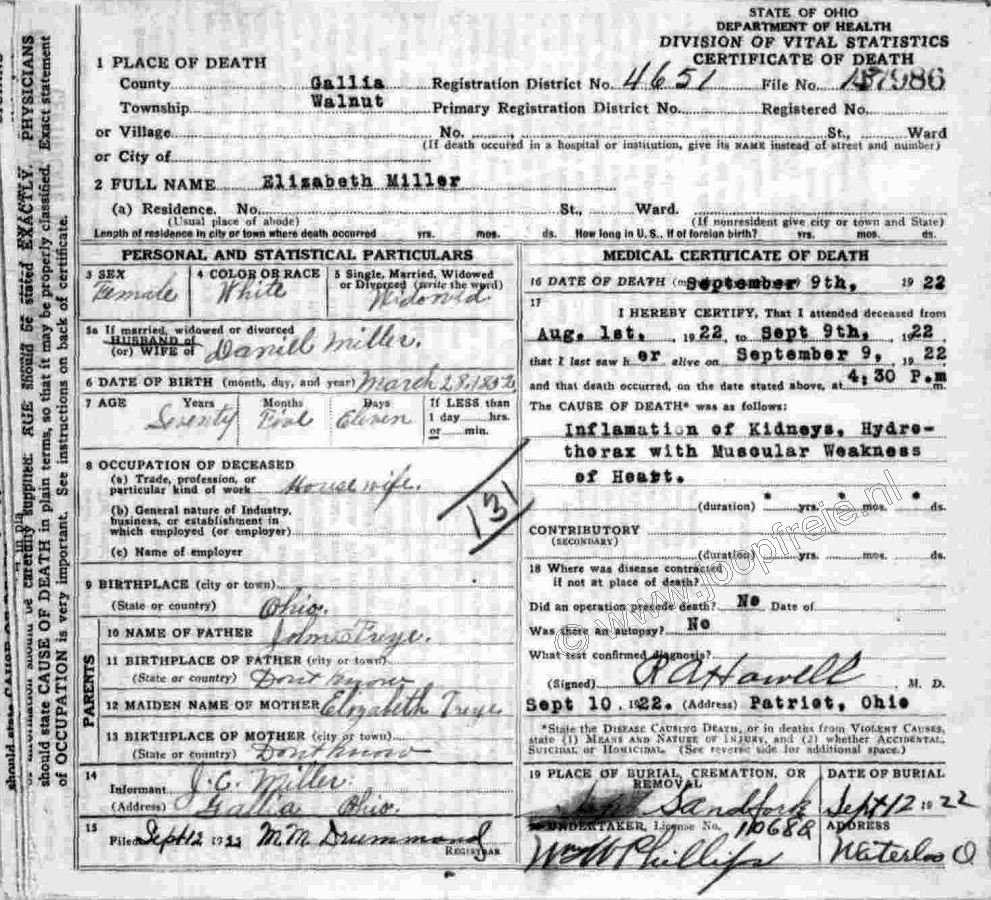 STATE OF OHIO
DEPARTMENT OF HEALTH
DIVISION OF VITAL STATISTICS
CERTIFICATE OF DEATH
1 PLACE OF DEATH
County Gallia Registration District No. 4651 File No. 57986
Township Walnut Primary Registration District No. Registered No.
or Village No. St., Ward
(If death occured in a hospital or institution, give its NAME instead of street and number)
or City of
2 FULL NAME Elizabeth Miller
(a) Residence. No. St., Ward.
(Usual place of abode) (If nonresident give city or town and State)
Length of residence in city or town where death occurred yrs. mos. ds. How long in U.S., if of foreign birth? yrs. mos. ds.
PERSONAL AND STATISTICAL PARTICULARS
3 SEX 4 COLOR OR RACE 5 Single, Married, Widowed
or Divorced (write the word)
Female White Widowed
5a If married, widowed or divorced
HUSBAND of
(or) WIFE of Daniel Miller.
6 DATE OF BIRTH (month, day, and year) March 28, 1852
7 AGE Years Months Days If LESS than
1 day hrs.
or min.
Seventy Five Eleven
8 OCCUPATION OF DECEASED
(a) Trade, profession, or
particular kind of work House wife.
(b) General nature of Industry,
business, or establishment in
which employed (or employer)
(c) Name of employer
131
9 BIRTHPLACE (city or town)
(State or country) Ohio.
PARENTS
10 NAME OF FATHER John Freye.
11 BIRTHPLACE OF FATHER (city or town)
(State or country) Dont know
12 MAIDEN NAME OF MOTHER Elizabeth Freye
13 BIRTHPLACE OF MOTHER (city or town)
(State or country) Dont know
14
Informant J. C. Miller
(Address) Gallia Ohio.
15
Filed Sept 12 1922 M. M. Drummond
REGISTRAR
MEDICAL CERTIFICATE OF DEATH
16 DATE OF DEATH September 9th, 1922
17
I HEREBY CERTIFY, That I attended deceased from
Aug. 1st, 1922 to Sept 9th, 1922
that I last saw her alive on September 9, 1922
and that death occurred, on the date stated above, at 4:30 P.m
The CAUSE OF DEATH* was as follows:
Inflamation of Kidneys, Hydro-
thorax with Muscular Weakness
of Heart.
(duration) yrs. mos. ds.
CONTRIBUTORY
(SECONDARY)
(duration) yrs. mos. ds.
18 Where was disease contracted
if not at place of death?
Did an operation precede death? No Date of
Was there an autopsy? No
What test confirmed diagnosis?
(Signed) R A Howell M. D.
Sept 10. 1922. (Address) Patriot, Ohio
*State the DISEASE CAUSING DEATH, or in deaths from VIOLENT CAUSES,
state (1) MEANS AND NATURE OF INJURY, and (2) whether ACCIDENTAL,
SUICIDAL or HOMICIDAL. (See reverse side for additional space.)
19 PLACE OF BURIAL, CREMATION, OR
REMOVAL
DATE OF BURIAL
Sandfork Sept 12 1922
UNDERTAKER, License No. 1068a ADDRESS
Wm W Phillips Waterloo O
should be carefully supplied. AGE should be stated EXACTLY. PHYSICIANS
should state CAUSE OF DEATH in plain terms, so that it may be properly classified. Exact statement
of OCCUPATION is very important. See instructions on back of certificate.
© www.joopfreie.nl